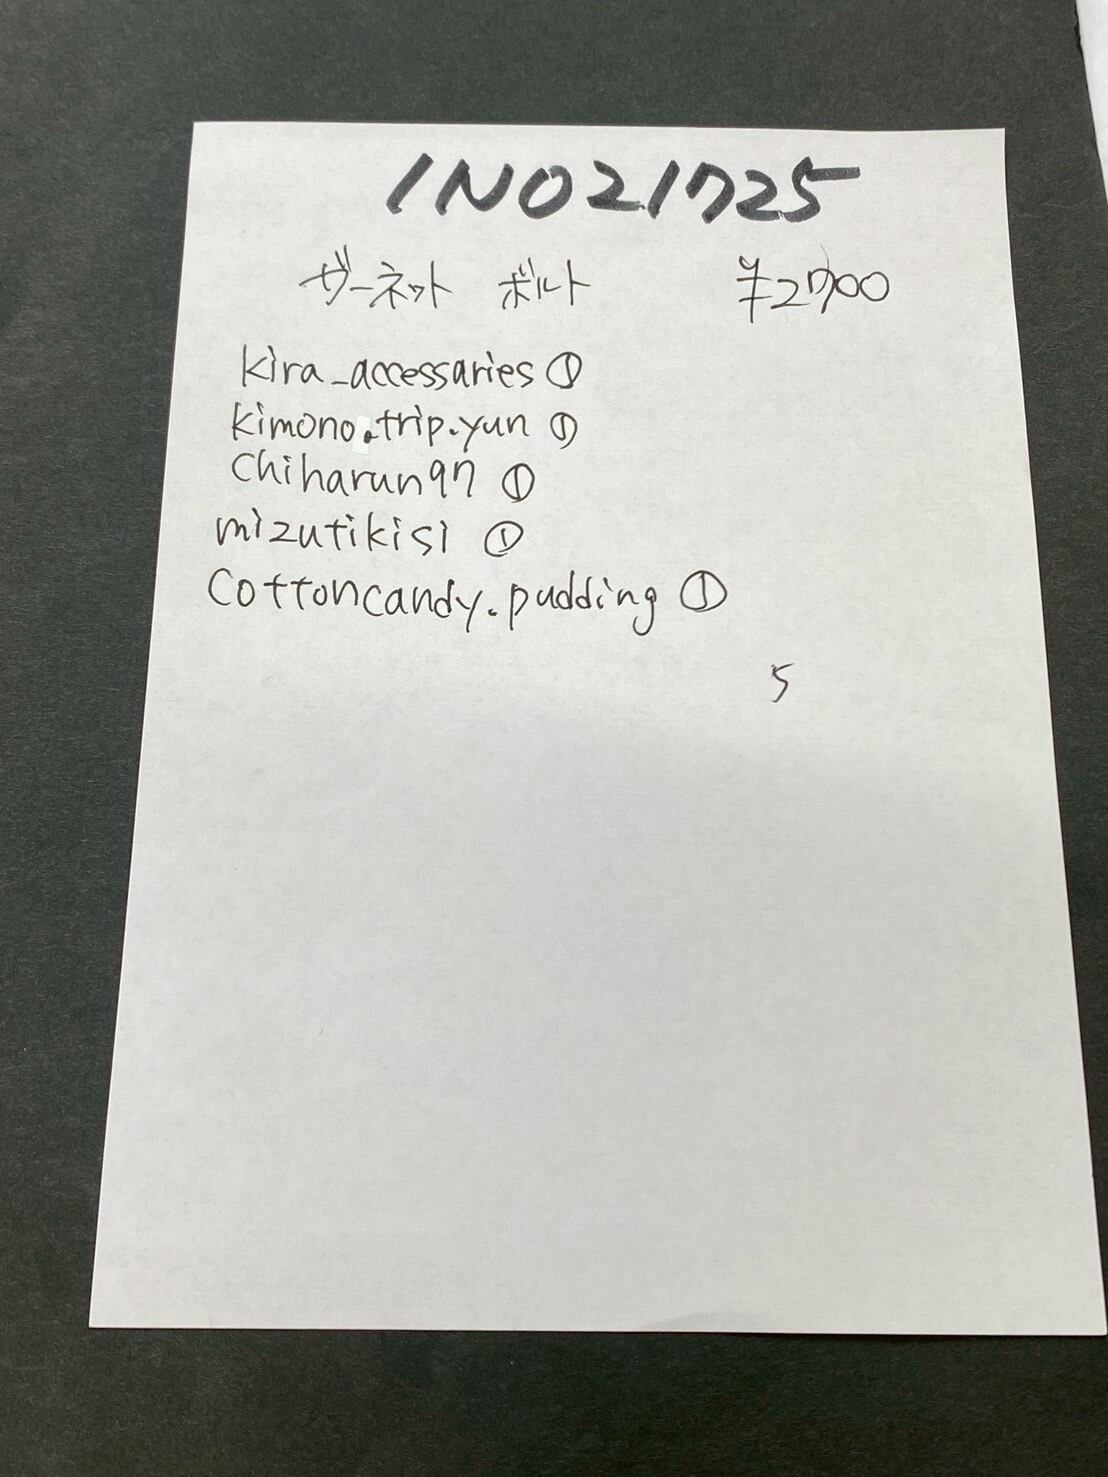 INO21725
ガーネット ボルト ¥2700
kira_accessaries ①
kimono.trip.yun ①
Chiharun97 ①
mizutikisi ①
Cottoncandy.pudding ①
5